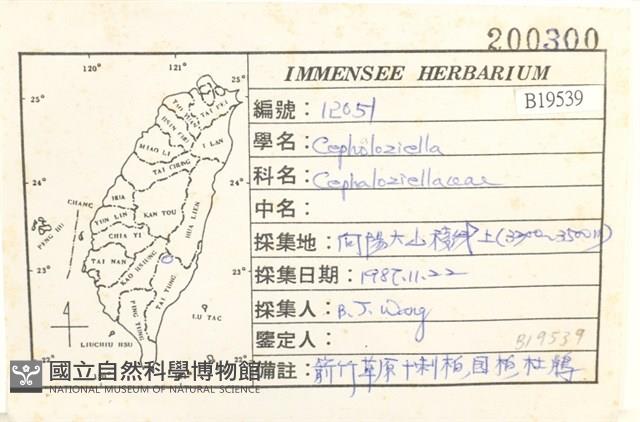 200300
IMMENSEE HERBARIUM
編號：12051
B19539
學名：Cepholoziella
科名：Cephaloziellaceae
中名：
採集地：向陽大山稜線上(3200~3500M)
採集日期：1987.11.22
採集人：B. J. Wang
鑒定人：
B19539
備註：箭竹草原+刺柏,圓柏,杜鵑
120° 121°
25° 25°
TAI PEI
TAO YUAN
HSIN CHU
I LAN
MIAO LI
TAI CHUNG
24° 24°
CHANG HUA
NAN TOU
HUA LIEN
YUN LIN
PENG HU
CHIA YI
TAI NAN
KAO HSIUNG
23° 23°
TAI TUNG
PING TUNG
LU TAO
LIUCHIU HSU
22° 22°
國立自然科學博物館
NATIONAL MUSEUM OF NATURAL SCIENCE